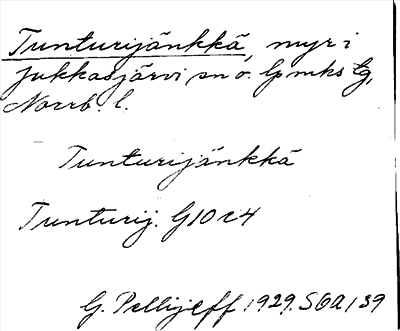 Tunturijänkkä, myr i
Jukkasjärvi sn o. lpmks tg,
Norrb. l.
Tunturijänkkä
Tunturij. G10r4
G. Pellijeff 1929. SOA 139